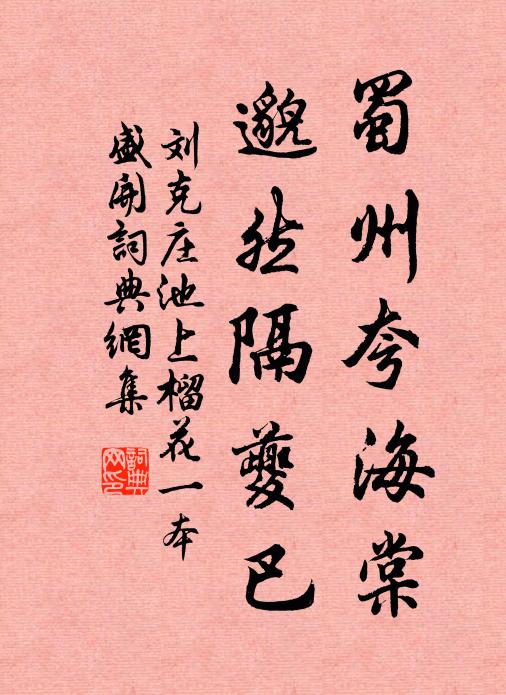 蜀州夸海棠
邈然隔夔巴
刘克庄池上榴花一本
盛开词典網集
詞典网印